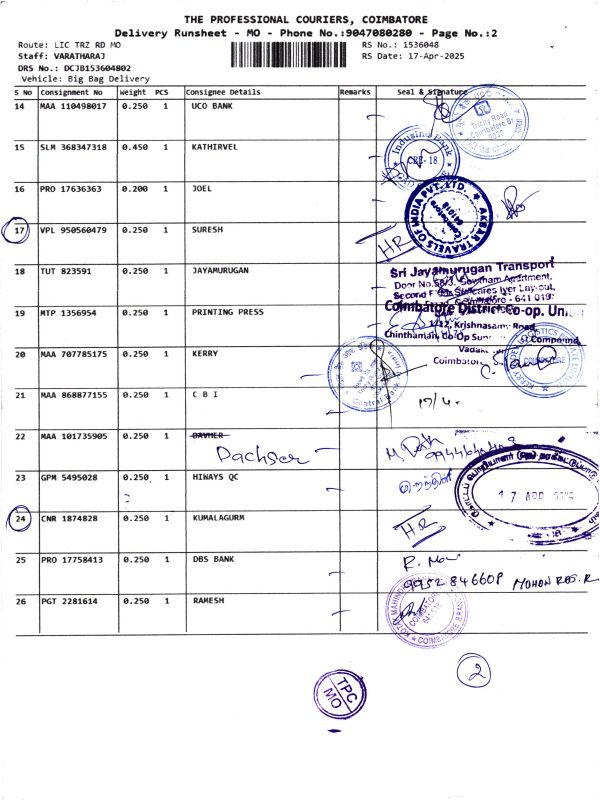 THE PROFESSIONAL COURIERS, COIMBATORE
Delivery Runsheet - MO - Phone No.:9047080280 - Page No.:2
Route: LIC TRZ RD MO
RS No.: 1536048
Staff: VARATHARAJ
RS Date: 17-Apr-2025
DRS No.: DCJB153604802
Vehicle: Big Bag Delivery
S No Consignment No Weight PCS Consignee Details Remarks Seal & Signature
14 MAA 110498017 0.250 1 UCO BANK
Trichy Road
Coimbatore
15 SLM 368347318 0.450 1 KATHIRVEL
Indusind Bank
CBE-18
16 PRO 17636363 0.200 1 JOEL
AKBAR TRAVELS OF INDIA PVT. LTD.
Coimbatore
641018
17 VPL 950560479 0.250 1 SURESH HR
18 TUT 823591 0.250 1 JAYAMURUGAN
Sri Jayamurugan Transport
Door No.
Second
Coimbatore - 641 018
19 MTP 1356954 0.250 1 PRINTING PRESS
Coimbatore District Co-op.
1/12, Krishnasamy Road
Chinthamani Co-Op
Compound,
20 MAA 707785175 0.250 1 KERRY
Central Bank
21 MAA 868877155 0.250 1 C B I 17/4.
22 MAA 101735905 0.250 1 DAVHER
Dachser
23 GPM 5495028 0.250 1 HIWAYS QC
17 APR 2025
24 CNR 1874828 0.250 1 KUMALAGURM HR
25 PRO 17758413 0.250 1 DBS BANK
9952 846608
26 PGT 2281614 0.250 1 RAMESH
KOTAK MAHINDRA
COIMBATORE
COIMBATORE BRANCH
2
TPC
MO